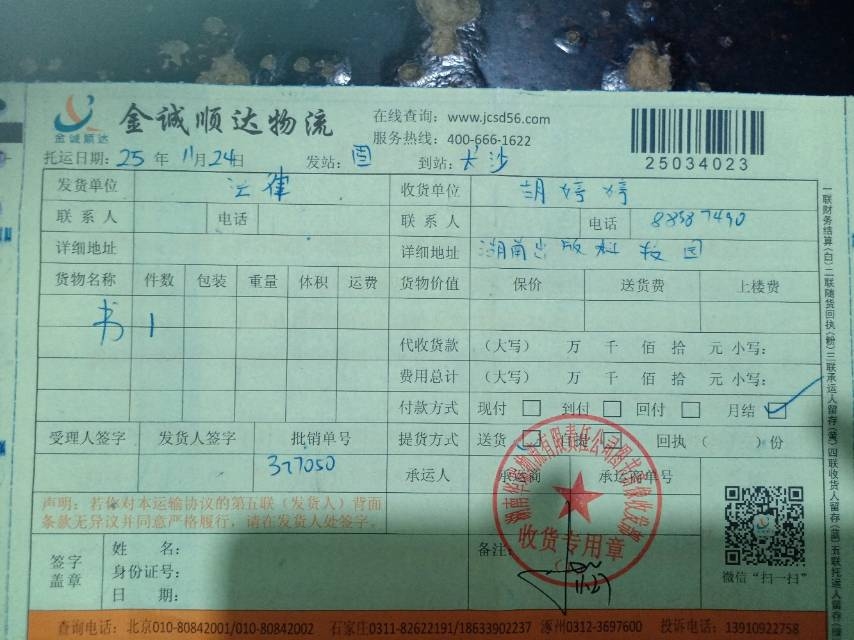 金诚顺达
金诚顺达物流
在线查询：www.jcsd56.com
服务热线：400-666-1622
25034023
托运日期：25 年 11月24日 发站：固 到站：长沙
发货单位 法律 收货单位 胡婷婷
联系人 电话 联系人 电话 88587490
详细地址 详细地址 湖南出版科 园
货物名称 件数 包装 重量 体积 运费 货物价值 保价 送货费 上楼费
书 1
代收货款 （大写） 万 千 佰 拾 元 小写：
费用总计 （大写） 万 千 佰 拾 元 小写：
付款方式 现付 到付 回付 月结
受理人签字 发货人签字 批销单号 提货方式 送货 自提 回执（ ）份
327050
承运人 承运商 承运商单号
声明：若你对本运输协议的第五联（发货人）背面
条款无异议并同意严格履行，请在发货人处签字。
签字
盖章
姓 名：
身份证号：
日 期：
备注：
收货专用章
11.27
微信“扫一扫”
一联财务结算（白）二联随货回执（粉）三联承运人留存（黄）四联收货人留存（蓝）五联托运人留存
查询电话：北京010-80842001/010-80842002 石家庄0311-82622191/18633902237 涿州0312-3697600 投诉电话：13910922758